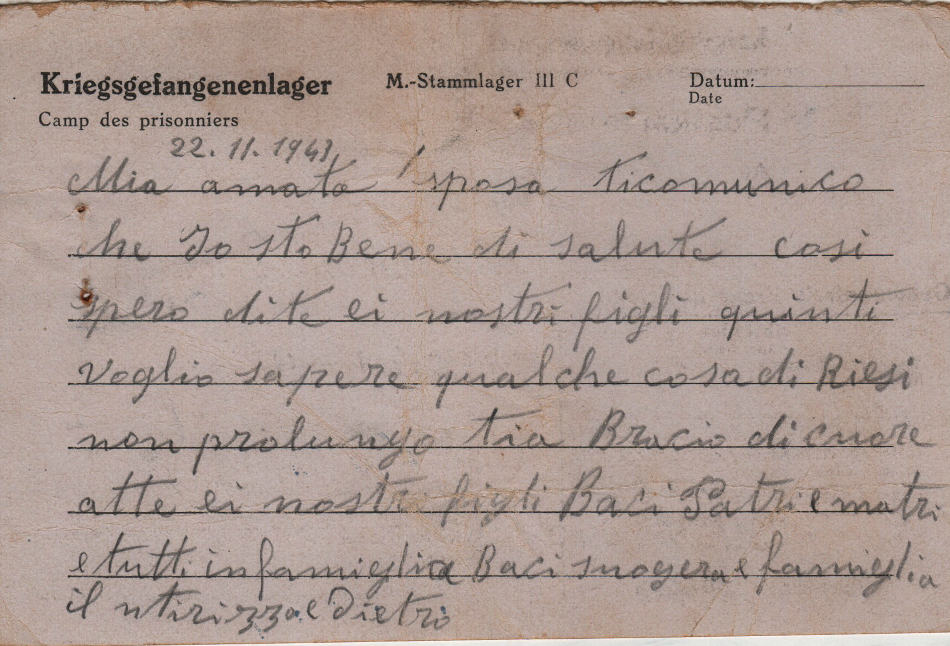 Kriegsgefangenenlager M.-Stammlager III C Datum:
Camp des prisonniers Date
22.11.1943
Mia amata sposa ticomunico
che Io sto Bene di salute cosi
spero dite ei nostri figli quinti
voglio sapere qualche cosa di Riesi
non prolungo tia Bracio di cuore
atte ei nostri figli Baci Patri e matri
e tutti in famiglia Baci suogera e famiglia
il ntirizza e Dietro